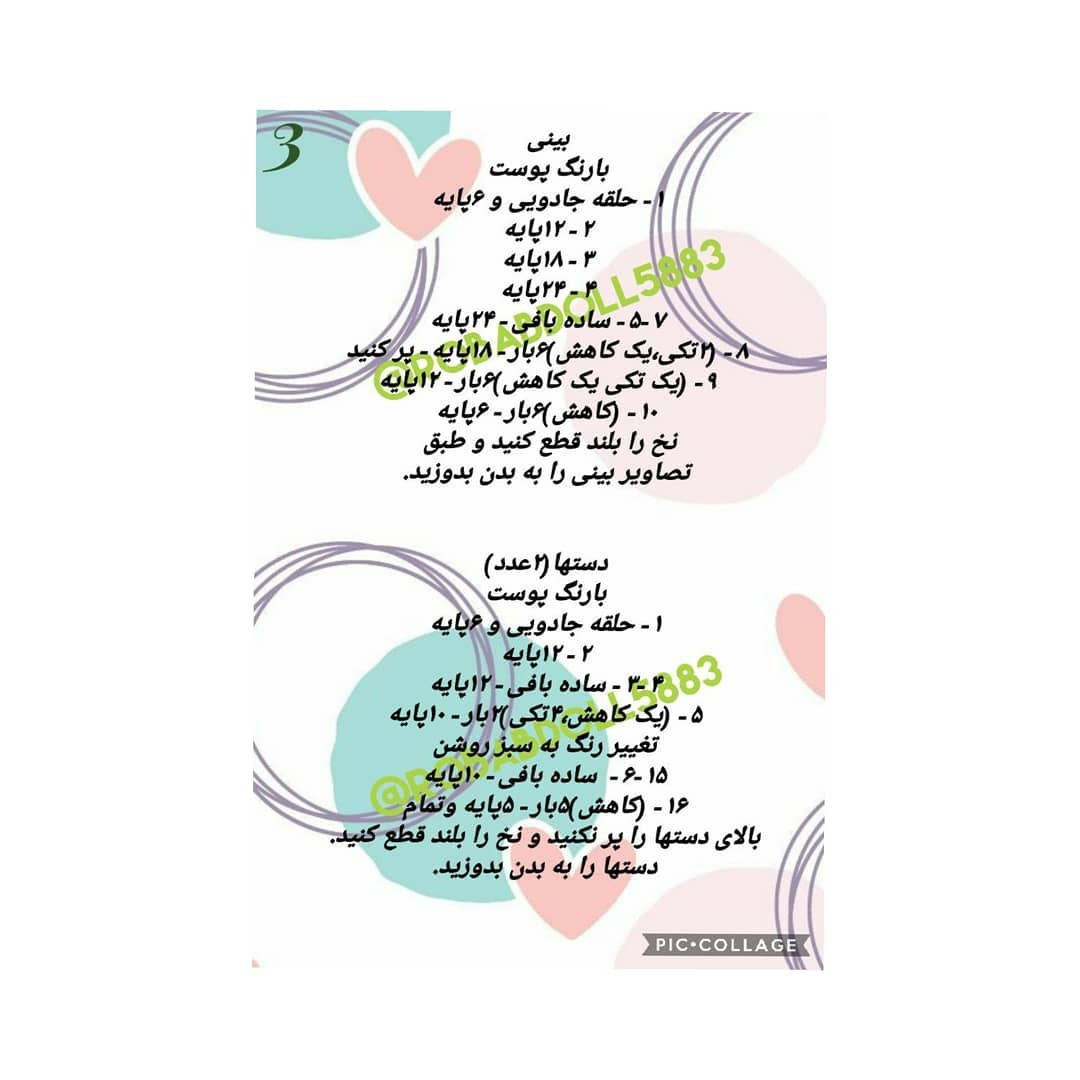 3
بینی
بارنگ پوست
۱ - حلقه جادویی و ۶پایه
۲ - ۱۲پایه
۳ - ۱۸پایه
۴ - ۲۴پایه
۵-۷ - ساده بافی - ۲۴پایه
۸ - (۲تکی،یک کاهش)۶بار - ۱۸پایه - پر کنید
۹ - (یک تکی یک کاهش)۶بار - ۱۲پایه
۱۰ - (کاهش)۶بار - ۶پایه
نخ را بلند قطع کنید و طبق
تصاویر بینی را به بدن بدوزید.
@ROBABDOLL5883
دستها(۲عدد)
بارنگ پوست
۱ - حلقه جادویی و ۶پایه
۲ - ۱۲پایه
۳-۴ - ساده بافی - ۱۲پایه
۵ - (یک کاهش،۴تکی)۲بار - ۱۰پایه
تغییر رنگ به سبز روشن
۶-۱۵ - ساده بافی - ۱۰پایه
۱۶ - (کاهش)۵بار - ۵پایه وتمام
بالای دستها را پر نکنید و نخ را بلند قطع کنید.
دستها را به بدن بدوزید.
@ROBABDOLL5883
PIC•COLLAGE